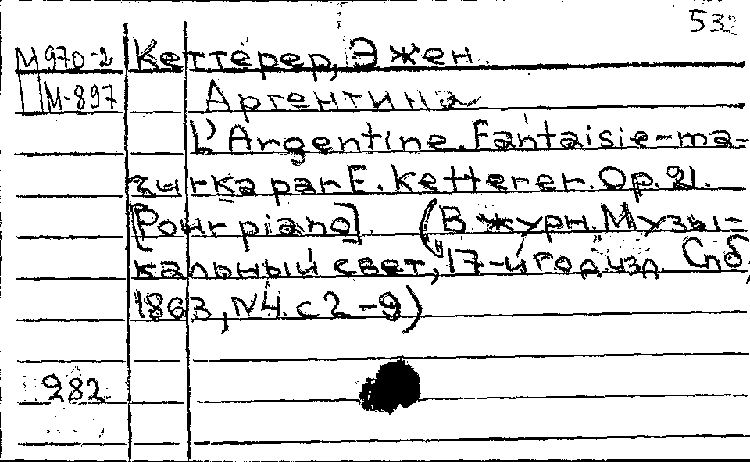 М 970-2 Кеттерер, Эжен
М-897 Аргентина
L'Argentine. Fantaisie-ma-
zurka par E. Ketterer. Op. 21.
[Pour piano] (В журн. Музы-
кальный свет, 17-й год изд. Спб,
1863, N4. с 2-9)
282